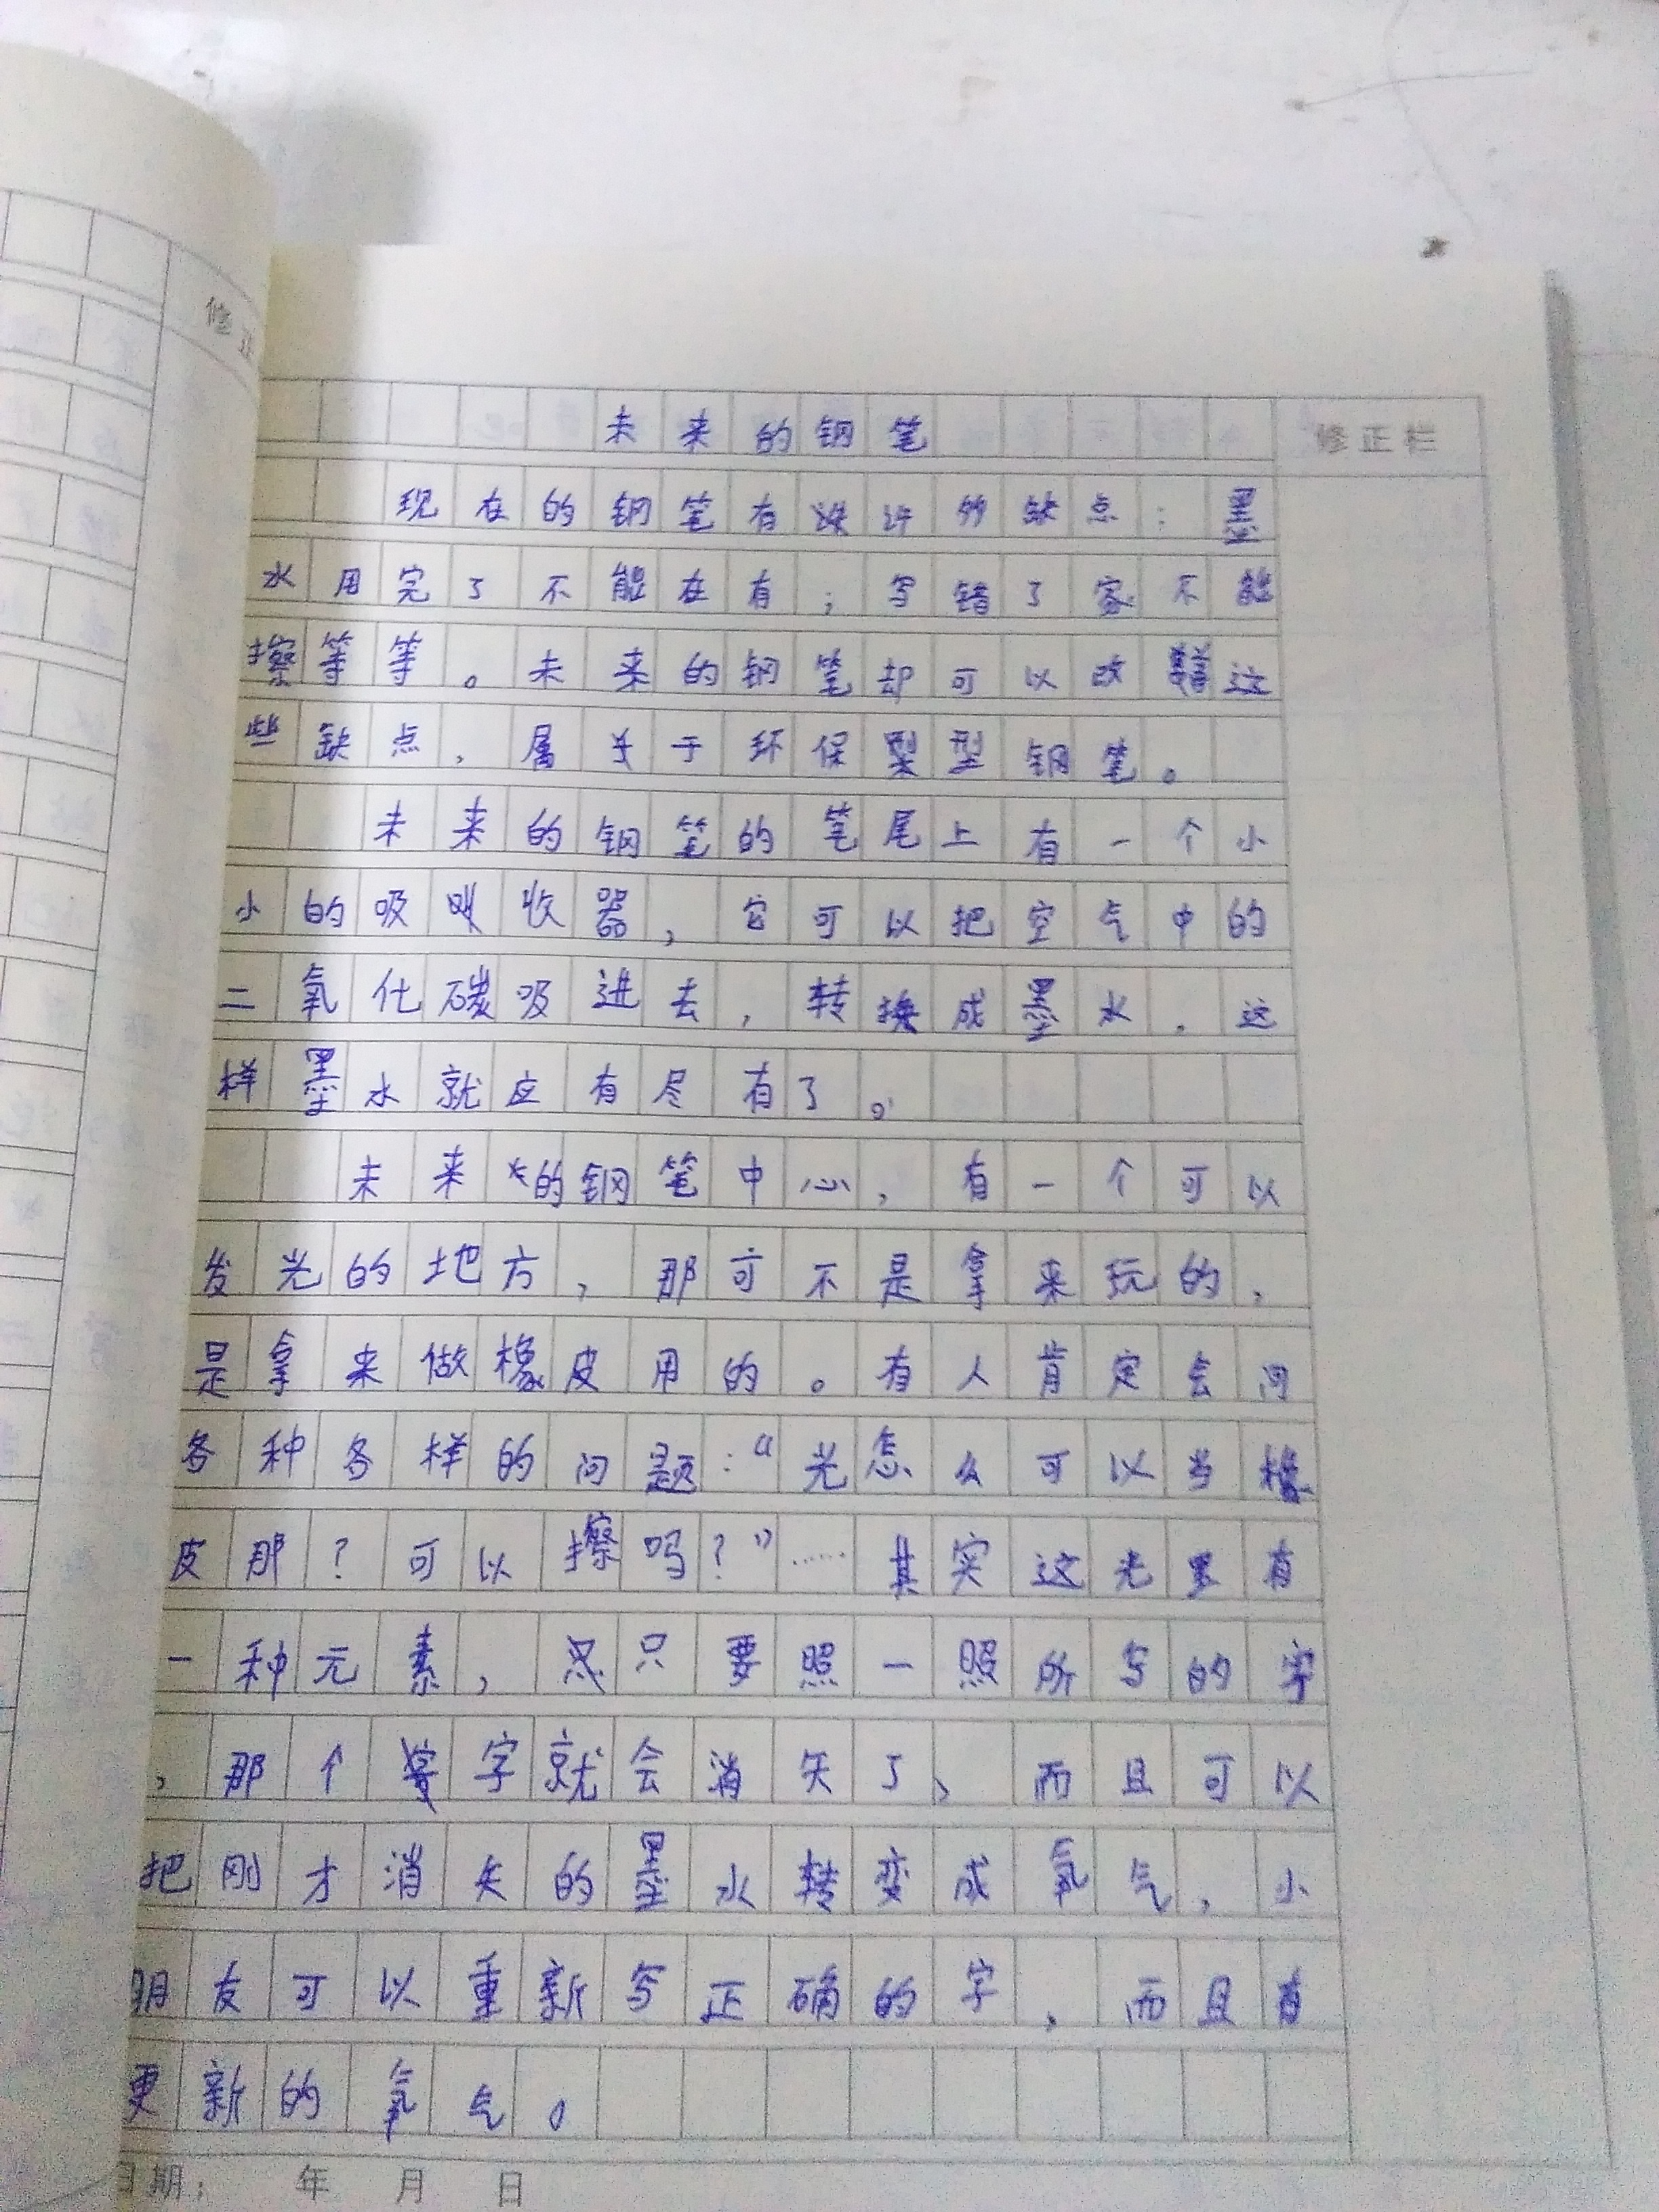 修正
未来的钢笔
修正栏
现在的钢笔有许多缺点：墨
水用完了不能在有；写错了不能
擦等等。未来的钢笔却可以改这
些缺点，属于环保型钢笔。
未来的钢笔的笔尾上有一个小
小的吸收器，它可以把空气中的
二氧化碳吸进去，转换成墨水，这
样墨水就应有尽有了。
未来的钢笔中心，有一个可以
发光的地方，那可不是拿来玩的，
是拿来做橡皮用的。有人肯定会问
各种各样的问题：“光怎么可以当橡
皮那？可以擦吗？”……其实这光里有
一种元素，只要照一照所写的字
，那个字就会消失了，而且可以
把刚才消失的墨水转变成氧气，小
朋友可以重新写正确的字，而且有
更新的氧气。
日期：年月日